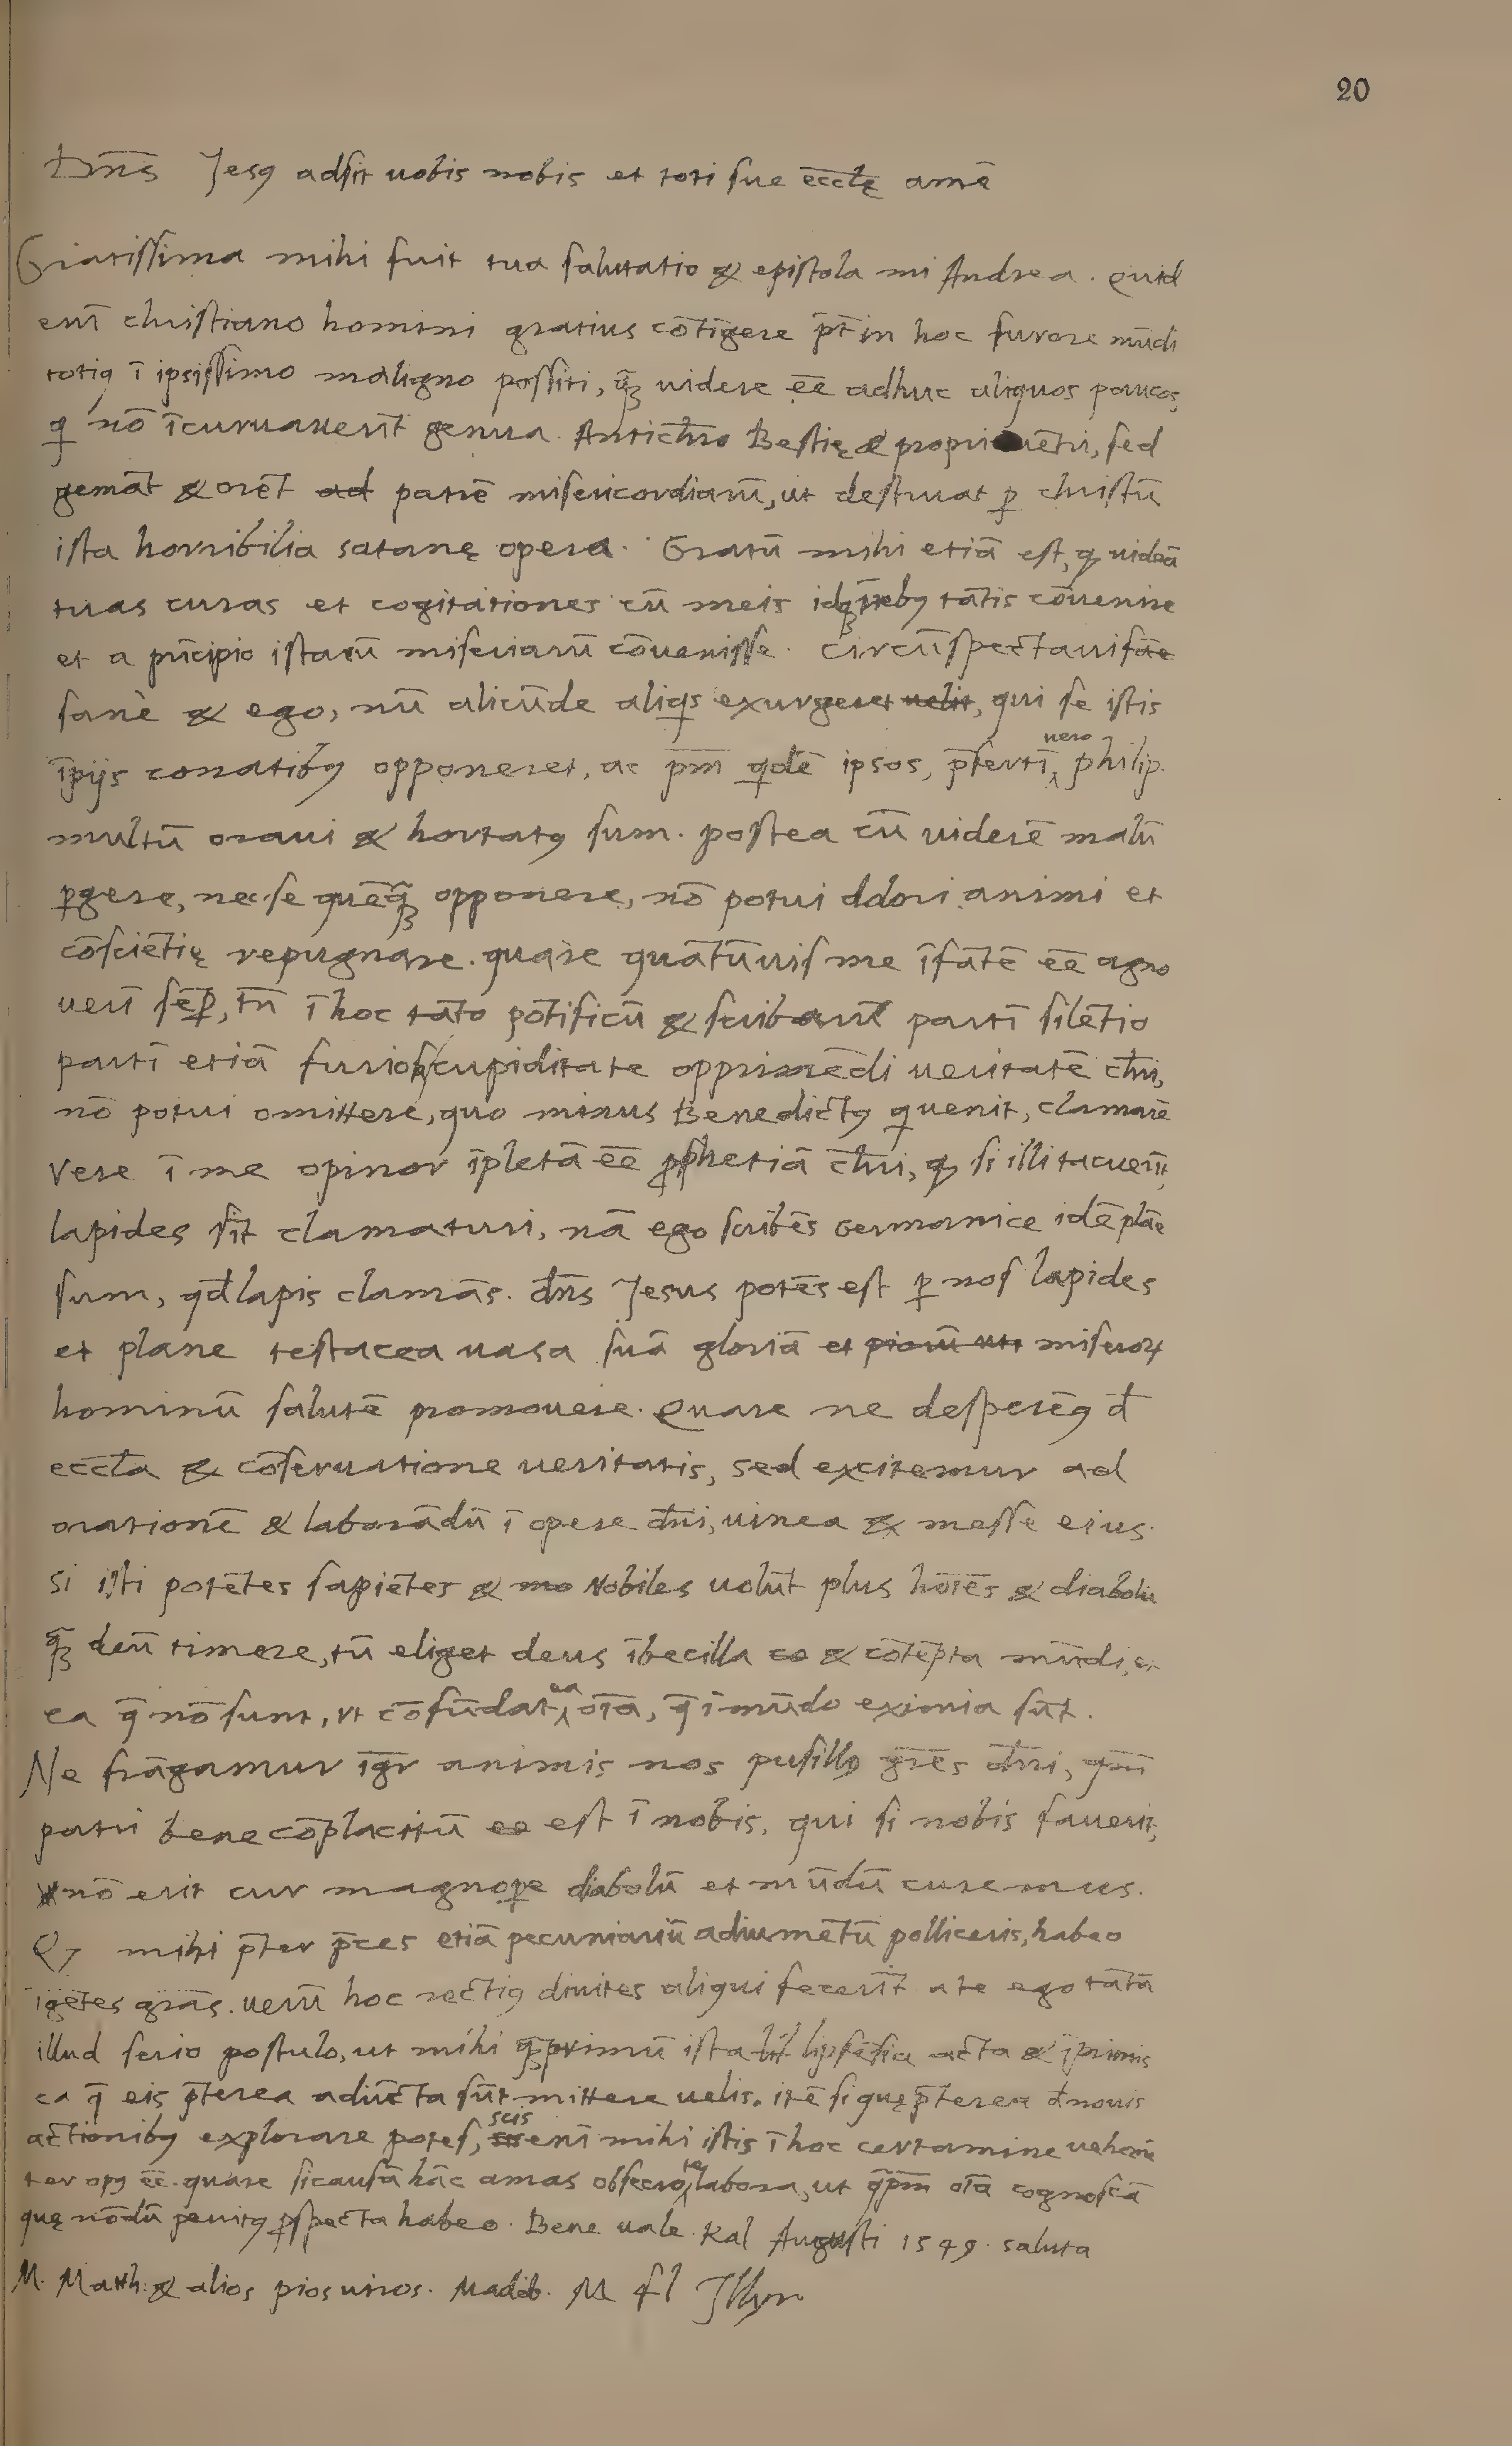 20
Dn̄s Jesꝰ adsit uobis nobis et toti sue eccl̄ę amē
Gratissima mihi fuit tua salutatio & epistola mi Andrea. Quid
em̄ christiano homini gratius cōtīgere pt̄ in hoc furore mūdi
totiꝰ ī ipsissimo maligno possiti, q̄ꝫ uidere eē adhuc aliquos paucos,
q nō īcuruauerīt genua. Antichr̄o Bestię & sed
gemāt & orēt ad patrē misericordiarū, ut destruat ꝑ christū
ista horribilia satanę opera. Gratū mihi etiā est, ꝙ uideā
tuas curas et cogitationes cū meis tātis cōuenire
et a prīcipio istarū miseriarū cōuenisse. Circūspectaui sāe
sanè & ego, nū alicūde aliqs exurgeret uelit, qui se istis
īpijs conatibꝰ opponeret, ac pm̄ qdē ipsos, p̄sertī uero philip.
multū oraui & hortatꝰ sum. postea cū uiderē malū
ꝑgere, nec se quēq̄ꝫ opponere, nō potui dolori animi et
cōsciētię repugnare. quare quātūuis me īfātē eē agno
uerī sēꝑ, tn̄ ī hoc tāto pōtificū & scribarū partī silētio
partī etiā furiosa cupiditate opprimēdi ueritatē chr̄i,
nō potui omittere, quo minus Benedictꝰ q uenit, clamarē
Vere ī me opinor īpletā eē ꝓphetiā chr̄i, ꝙ si illi tacuerīt,
lapides sīt clamaturi, nā ego scribēs Germanice idē plāe
sum, qd̄ lapis clamās. dn̄s Jesus potēs est ꝑ nos lapides
et plane testacea uasa suā gloriā et piorū uti miseroꝝ
hominū salutē promouere. Quare ne desperēꝰ d̄
eccl̄a & cōseruatione ueritatis, sed excitemur ad
orationē & laborādū ī opere dn̄i, uinea & messe eius.
Si isti potētes sapiētes & mo Nobiles uolūt plus hoīēs & diabolū
q̄ꝫ deū timere, tū eliget deus ībecilla co & cōtēpta mūdi, et
ea q̄ nō sunt, vt cōfūdat ea oīa, q̄ ī mūdo eximia sūt.
Ne frāgamur īgr̄ animis nos pusillꝰ grēs dn̄i, qm̄
patri bene cōplacitū ee est ī nobis, qui si nobis fauerit,
nō erit cur magnoꝑe diabolū et mūdū curemus.
Qꝫ mihi p̄ter p̄ces etiā pecuniariū adiumētū polliceris, habeo
īgētes grās. uerū hoc rectiꝰ diuites aliqui fecerīt a te ego tātū
illud serio postulo, ut mihi q̄ꝫprimū ista lit lipsēsia acta & īprimis
ea q̄ eis p̄terea adiūcta sūt mittere uelis. itē si quę p̄terea d̄ nouis
actionibꝰ explorare potes, scis enī mihi istis ī hoc certamine uehemē
ter opꝰ eē. quare si causā hāc amas obsecro te labora, ut q̄pm̄ oīa cognoscā
quę nōdū penitꝰ ꝑspecta habeo. Bene uale. Kal Augusti 1549. saluta
M. Matth: & alios pios uiros. Madeb. M fl Illyr